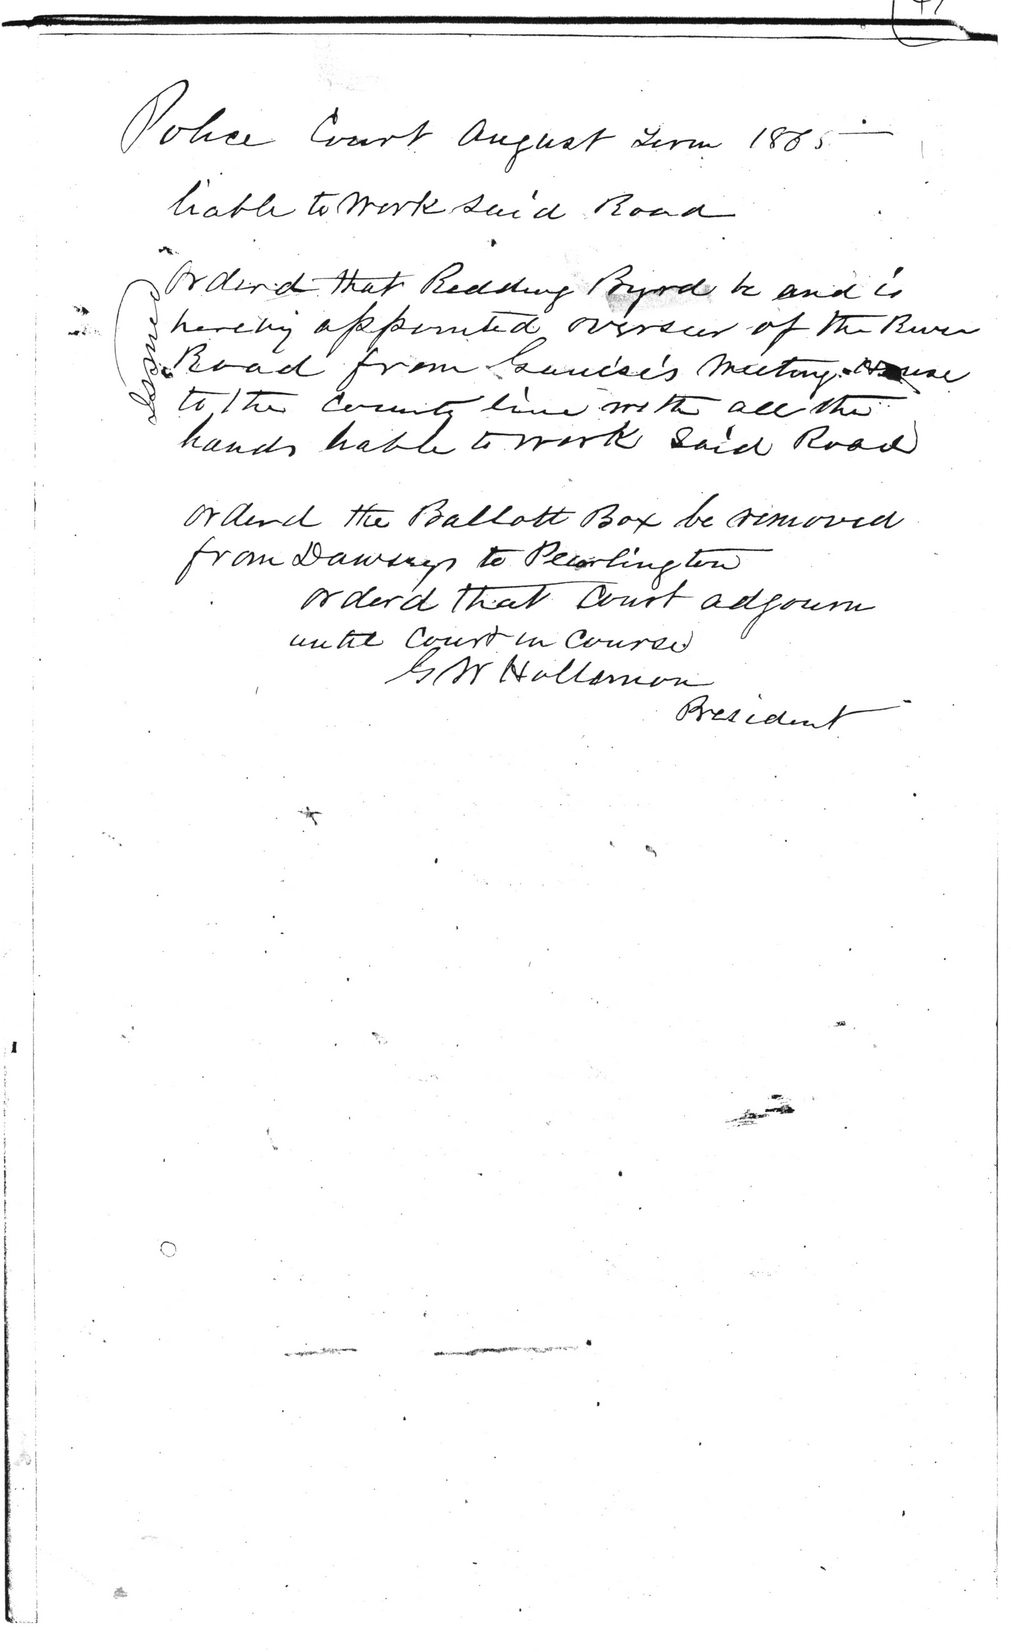 Police Court August Term 1865
liable to Work said Road
Issued
Orderd that Redding Byrd be and is
hereby appointed overseer of the River
Road from Meeting House
to the County line with all the
hands liable to work Said Road
orderd the Ballott Box be removed
from Dawseys to Pearlington
orderd that Court adjourn
until Court in Course
G W Hollomon
President